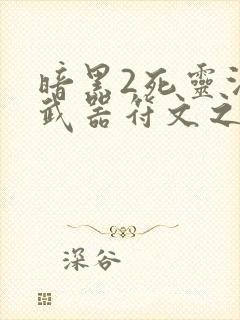 暗黑2死靈
武器符文之
深谷